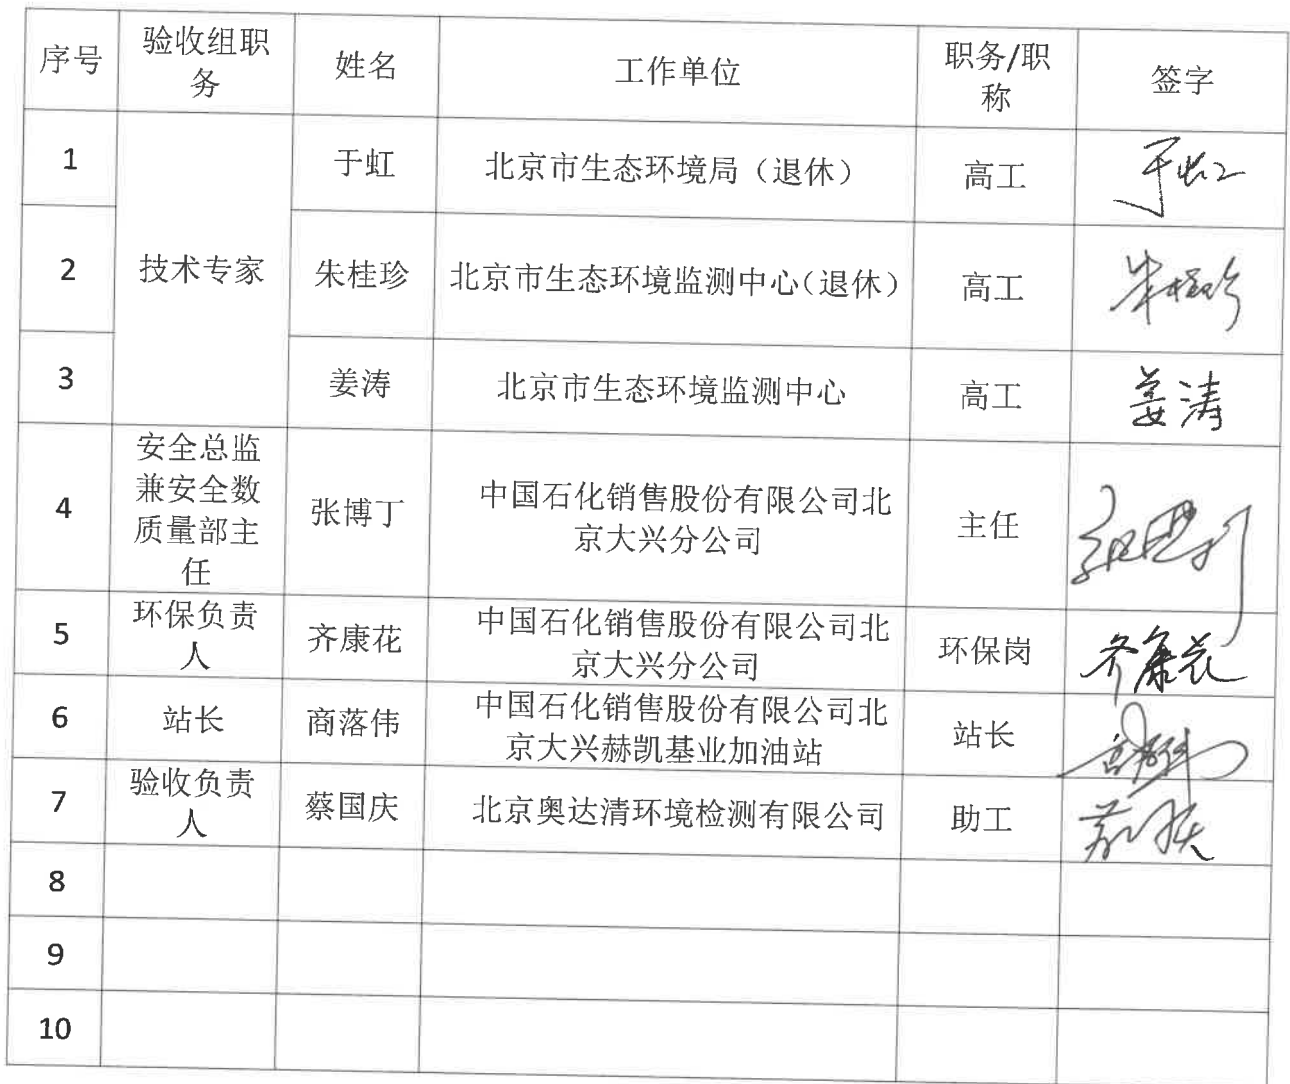 序号 验收组职务 姓名 工作单位 职务/职称 签字
1 技术专家 于虹 北京市生态环境局（退休） 高工 于虹
2 朱桂珍 北京市生态环境监测中心（退休） 高工 朱桂珍
3 姜涛 北京市生态环境监测中心 高工 姜涛
4 安全总监兼安全数质量部主任 张博丁 中国石化销售股份有限公司北京大兴分公司 主任
5 环保负责人 齐康花 中国石化销售股份有限公司北京大兴分公司 环保岗 齐康花
6 站长 商落伟 中国石化销售股份有限公司北京大兴赫凯基业加油站 站长
7 验收负责人 蔡国庆 北京奥达清环境检测有限公司 助工
8
9
10